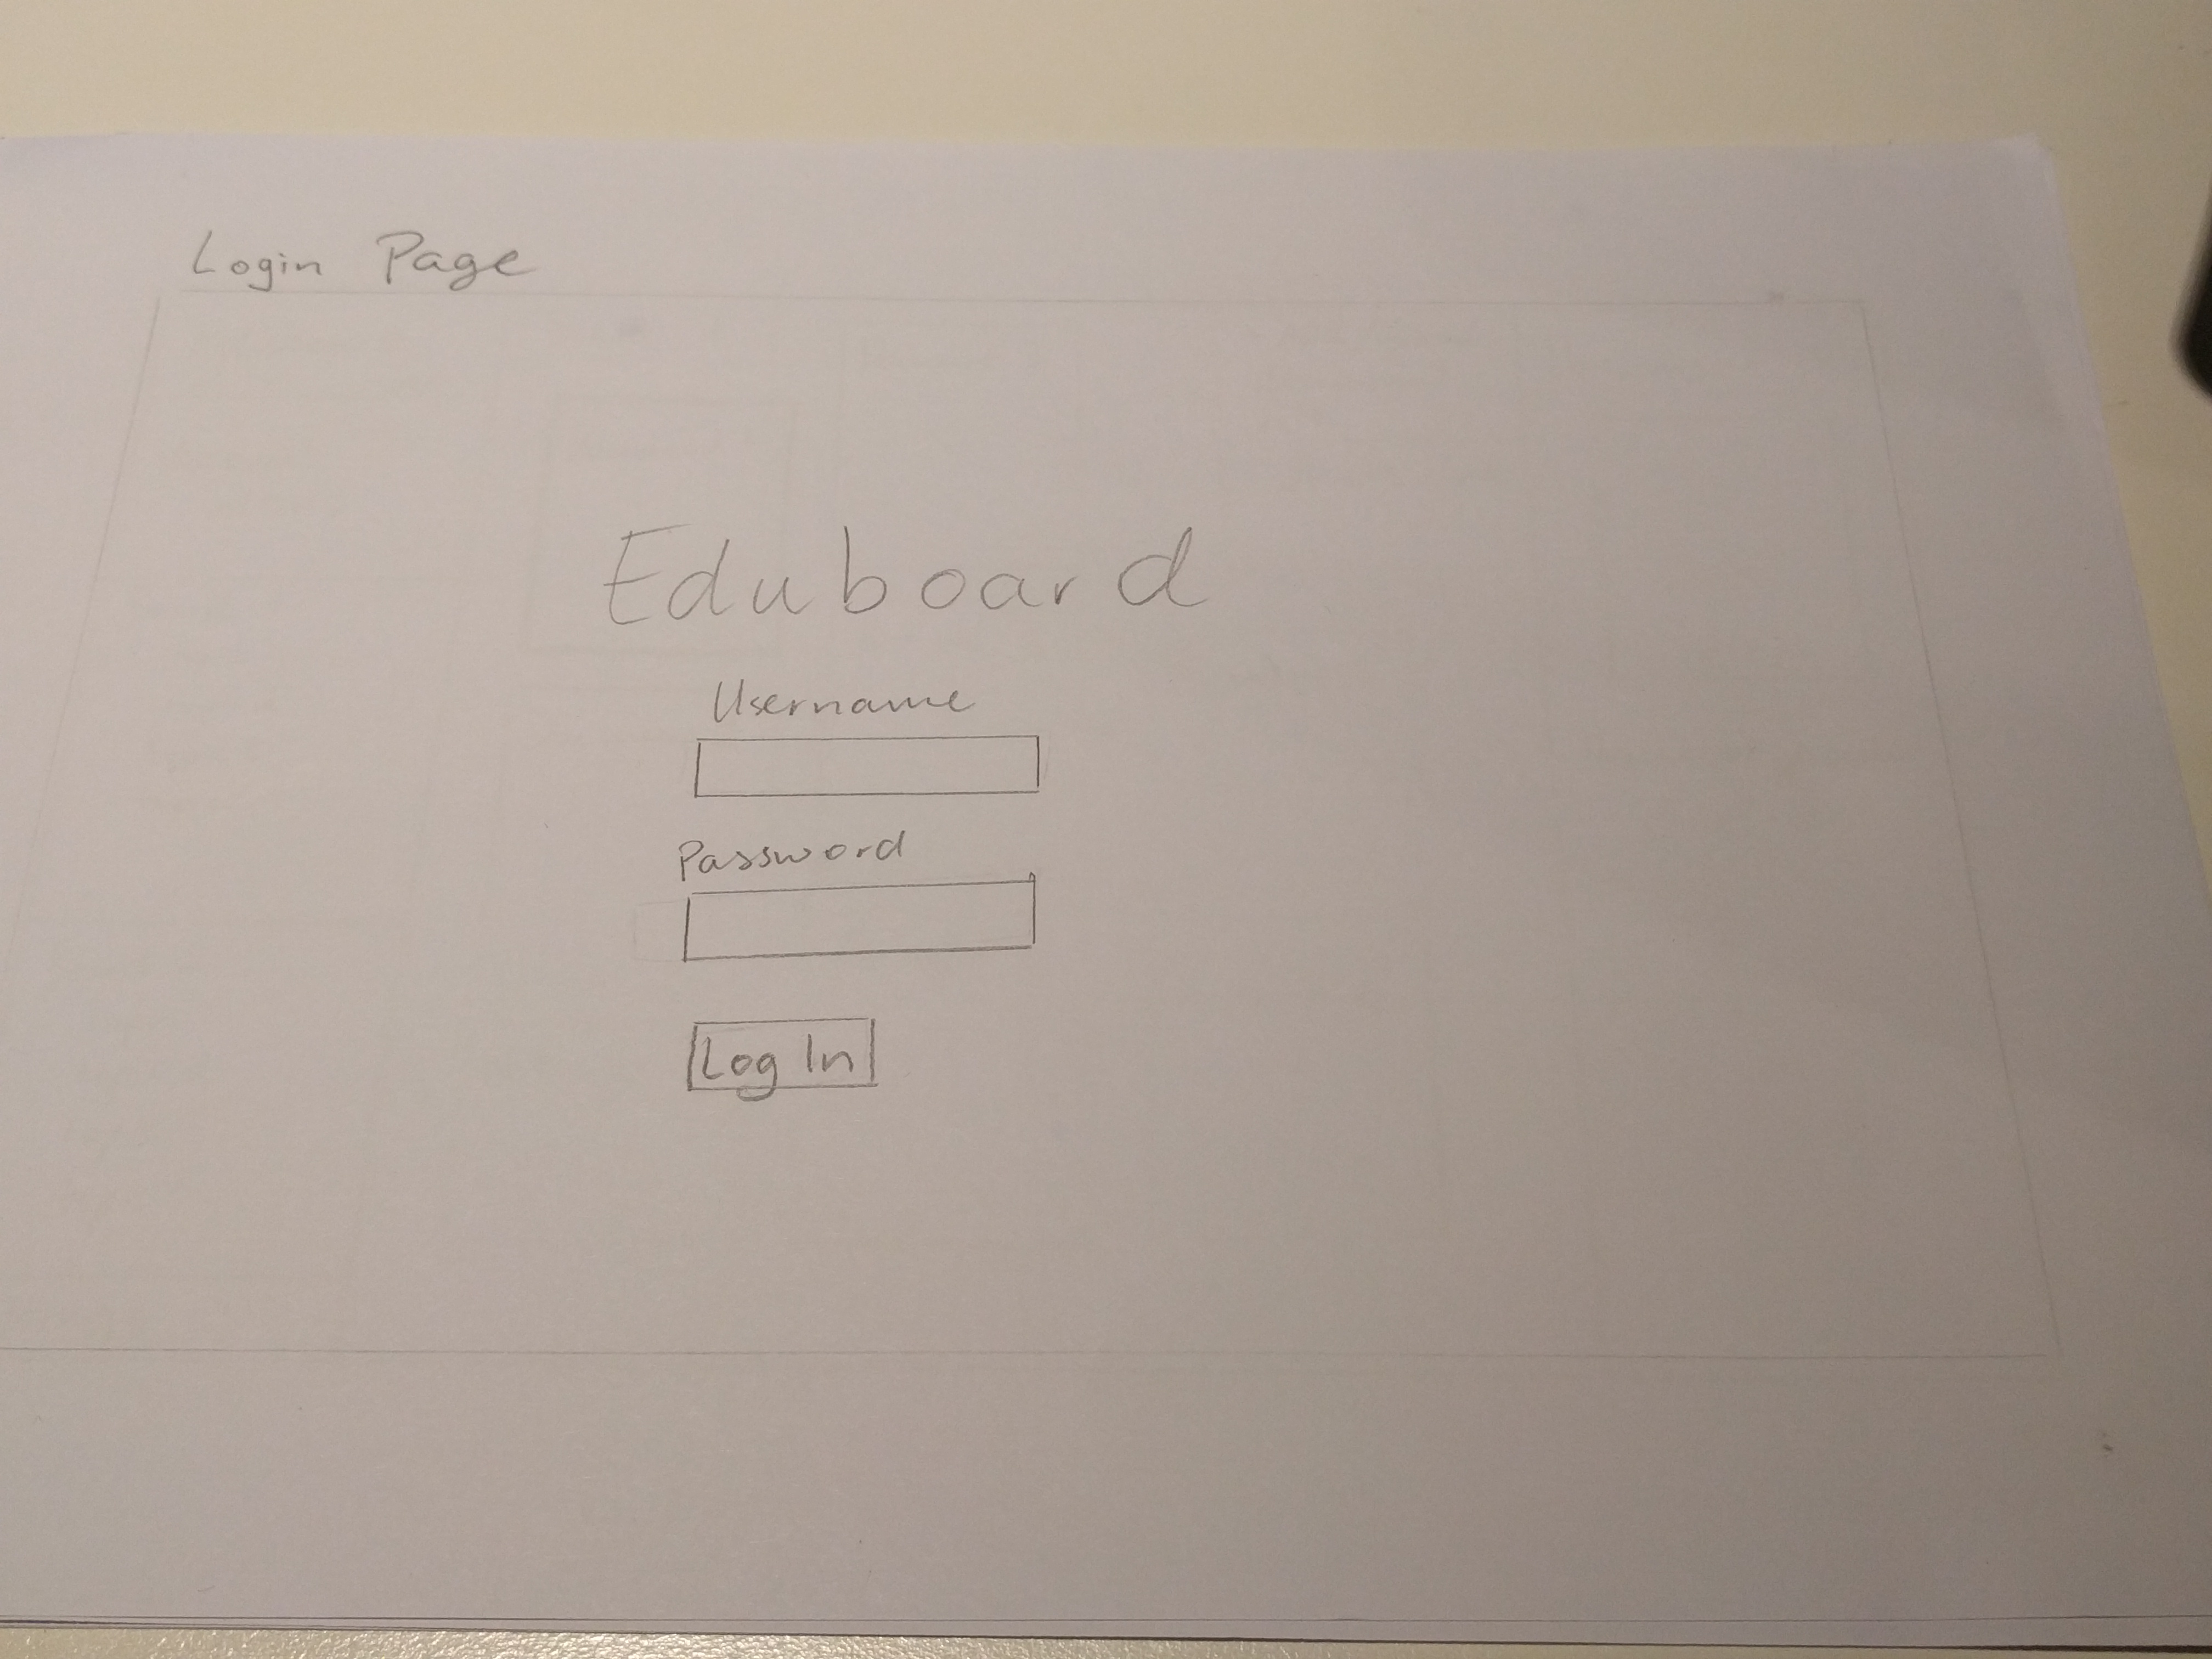 Login Page
Eduboard
Username
Password
Log In